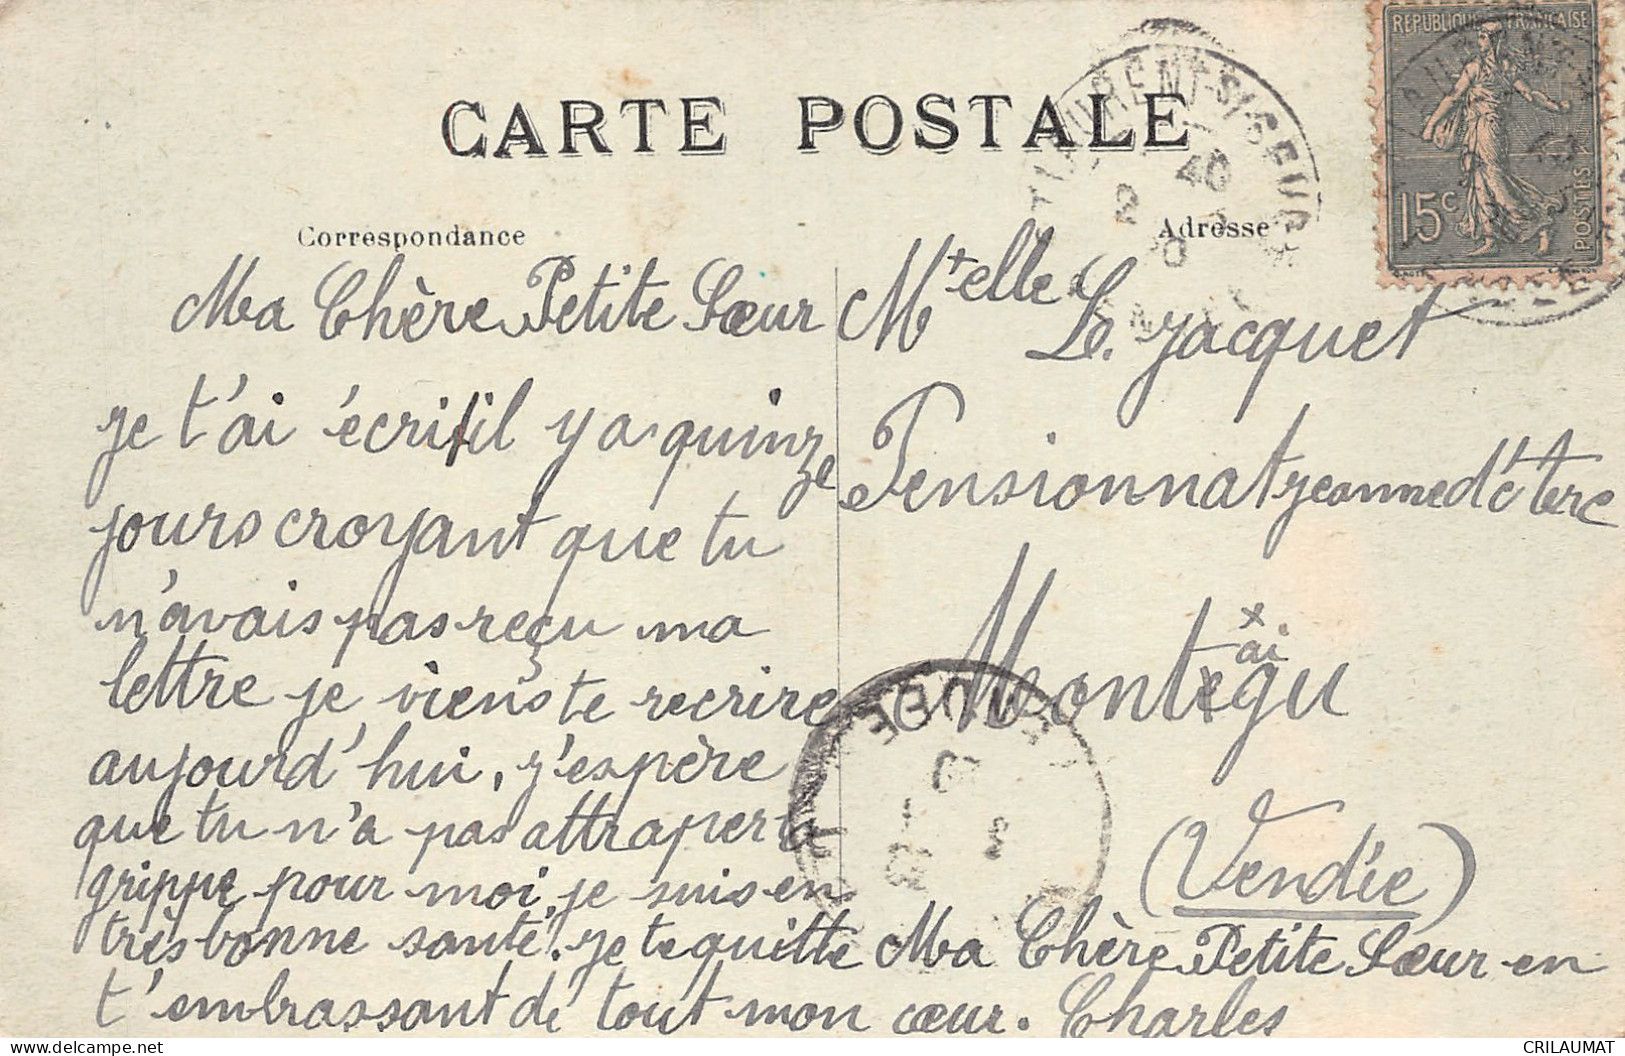 CARTE POSTALE
REPUBLIQUE FRANÇAISE
15c
POSTES
Correspondance
Adresse
Ma Chère Petite Sœur
je t'ai écrit il y a quinze
jours croyant que tu
n'avais pas reçu ma
lettre je viens te recrire
aujourd'hui, j'espère
que tu n'a pas attraper la
grippe pour moi, je suis en
très bonne santé. je te quitte Ma Chère Petite Sœur en
t'embrassant de tout mon cœur. Charles
Mtelle L. Jacquet
Pensionnat Jeanne d'Arc
Montaigu
(Vendée)
CRILAUMAT